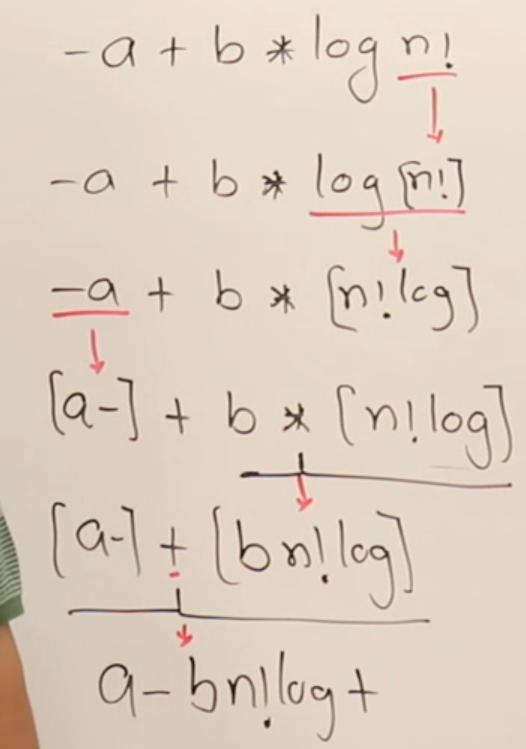 -a + b * log n!
-a + b * log [n!]
-a + b * [n! log]
[a-] + b * [n! log]
[a-] + [b n! log]
a - b n! log +